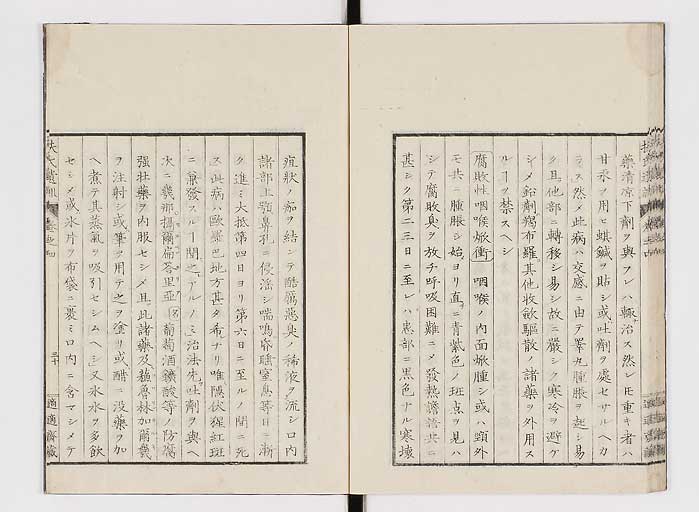 藥清凉下劑ヲ與フレハ輙チ治ス然レモ重キ者ハ
甘汞ヲ用ヒ蜞鍼ヲ貼シ或ハ吐劑ヲ處セサルヘカ
ラス然メ此病ハ交感ニ由テ睪丸腫脹ヲ起シ易
ク且他部ニ轉移シ易シ故ニ嚴シク寒冷ヲ避ケ
シメ鉛劑羯布羅其他收歛驅散ノ諸藥ヲ外用ス
ルヿヲ禁スヘシ
腐敗性咽喉焮衝 咽喉ノ内面焮腫シ或ハ頸外
モ共ニ腫脹シ始ヨリ直チニ青紫色ノ斑点ヲ見ハ
シテ腐敗臭ヲ放チ呼吸困難ニメ發熱譫語共ニ
甚シク第二三日ニ至レハ患部ニ黒色ナル寒壊
疽状ノ痂ヲ結シテ酷厲惡臭ノ稀液ヲ流シ口内
諸部上顎鼻孔ニ侵淫シ喘鳴昏睡窒息等日ニ漸
ク進ミ大抵第四日ヨリ第六日ニ至ルノ間ニ死
ス此病ハ歐羅巴地方甚タ希ナリ唯隱伏猩紅斑
ニ兼發スルヿ間之アルノミ治法先ツ吐劑ヲ與ヘ
次ニ幾那攝爾扁答里亞名葡萄酒鑛酸等ノ防腐
強壮藥ヲ内服セシメ且此諸藥及藴魯林加爾幾
ヲ注射シ或ハ筆ヲ用テ之ヲ塗リ或ハ醋ニ没藥ヲ加
ヘ煮テ其蒸氣ヲ吸引セシムヘシ又氷水ヲ多飲
セシメ或ハ氷片ヲ布袋ニ裹ミ口内ニ含マシメテ
扶氏經驗遺訓 卷之四 三十 適適齋藏